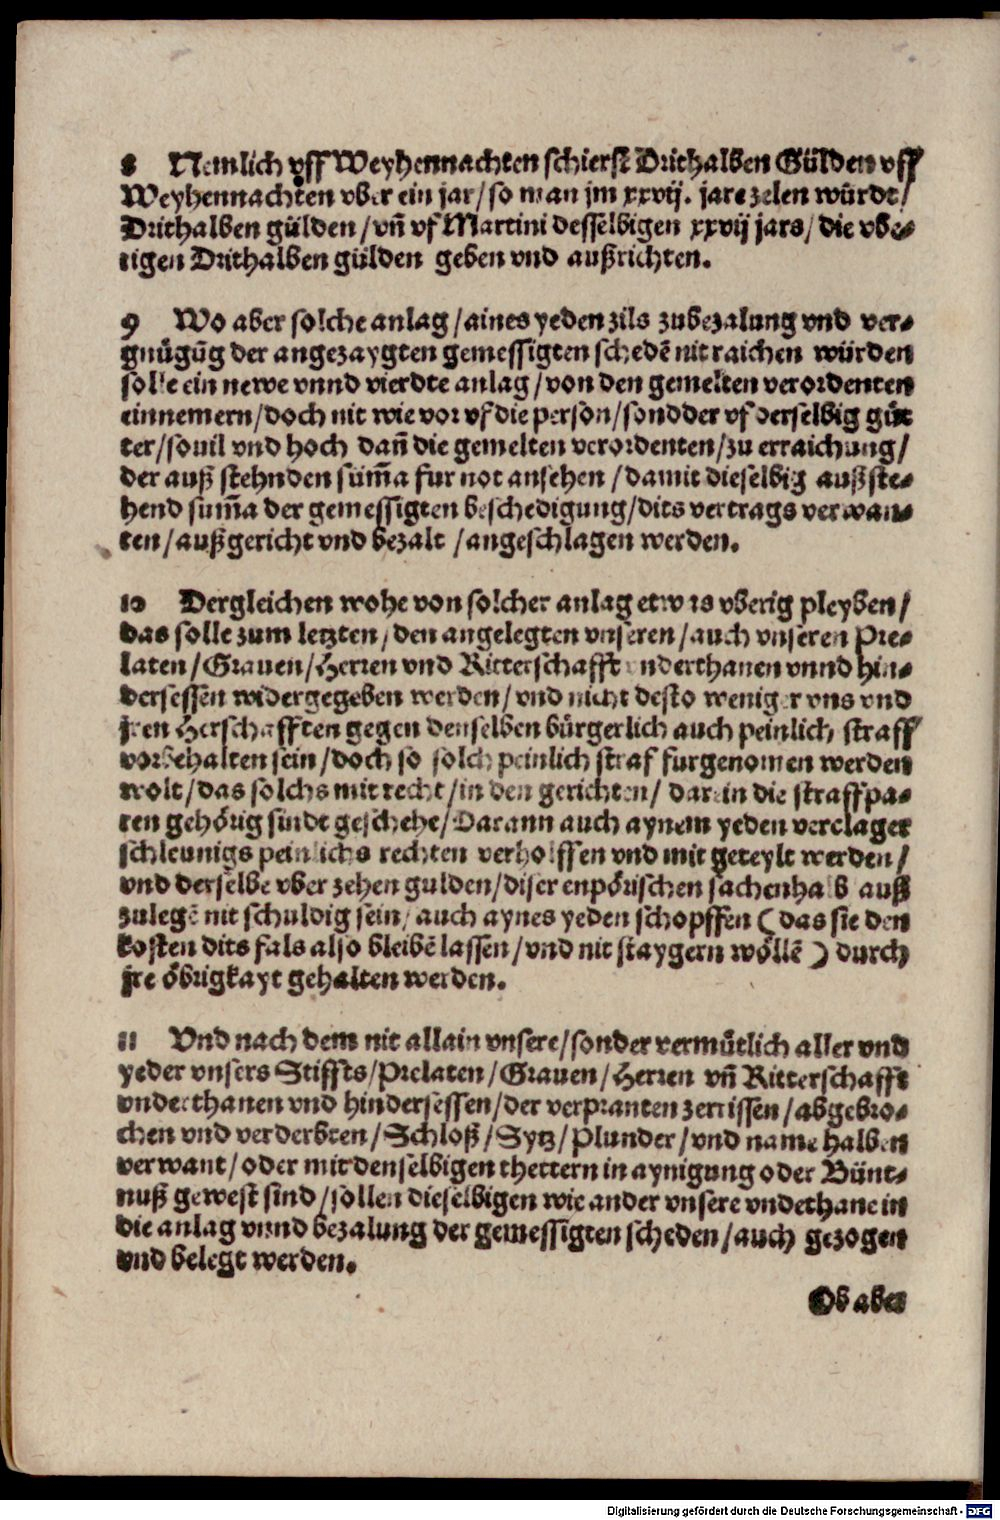 8 Nemlich vff Weyhennachten schierst Drithalben Gülden vff
Weyhennachten vber ein jar / so man jm xxvij. jare zelen würdt /
Drithalben gülden / vñ vf Martini desselbigen xxvij jars / die vbe-
rigen Drithalben gülden geben vnd außrichten.
9 Wo aber solche anlag / aines yeden zils zubezalung vnd ver-
gnügūg der angezaygten gemessigten schedē nit raichen würden
solle ein newe vnnd vierdte anlag / von den gemelten verordenten
einnemern / doch nit wie vor vf die person / sondder vf derselbig güt
ter / souil vnd hoch dañ die gemelten verordenten / zu erraichung /
der auß stehnden sum̃a fur not ansehen / damit dieselbig auß ste-
hend sum̃a der gemessigten beschedigung / dits vertrags verwan-
ten / außgericht vnd bezalt / angeschlagen werden.
10 Dergleichen wohe von solcher anlag etwas vberig pleyben /
das solle zum letzten / den angelegten vnseren / auch vnseren Pre-
laten / Grauen / Herren vnd Ritterschafft vnderthanen vnnd hin-
dersessen widergegeben werden / vnd nicht desto weniger vns vnd
jren Herschafften gegen denselben bürgerlich auch peinlich straff
vorbehalten sein / doch so solch peinlich straf furgenomen werden
wolt / das solchs mit recht / in den gerichten / darein die straffpa-
ren gehörig sindt geschehe / Darann auch aynem yeden verclager
schleunigs peinlichs rechten verholffen vnd mit geteylt werden /
vnd derselbe vber zehen gulden / diser enpörischen sachenhalb auß
zulegē nit schuldig sein / auch aynes yeden schopffen ( das sie den
kosten dits fals also bleibē lassen / vnd nit staygern wöllē ) durch
jre öbrigkayt gehalten werden.
11 Vnd nach dem nit allain vnsere / sonder vermütlich aller vnd
yeder vnsers Stiffts / Prelaten / Grauen / Herren vñ Ritterschafft
vnderthanen vnd hindersessen / der verpranten zerrissen / abgebro-
chen vnd verderbten / Schloß / Sytz / Plunder / vnd name halben
verwant / oder mit denselbigen thettern in aynigung oder Bünt-
nuß gewest sind / sollen dieselbigen wie ander vnsere vndethane in
die anlag vnnd bezalung der gemessigten scheden / auch gezogen
vnd belegt werden.
Ob aber
Digitalisierung gefördert durch die Deutsche Forschungsgemeinschaft - DFG